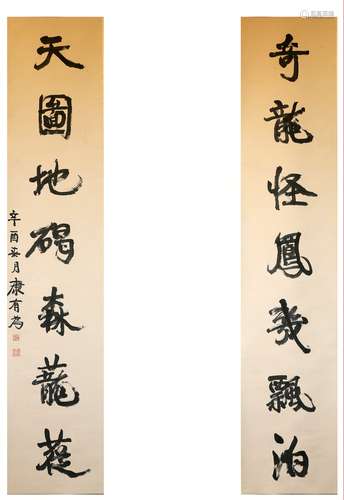 奇龍怪鳳幾飄泊
天圖地碣森蘢蓯
辛酉月康有為